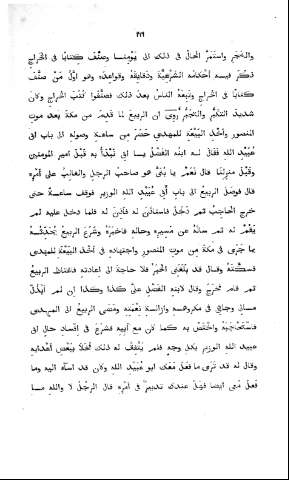 ٢١٦
والشجر واستمرّ الحال في ذلك الى يومنا وصنّف كتابًا في الخراج
ذكر فيه احكامه الشرعيّة ودقايقه وقواعده وهو اوّل من صنّف
كتابًا في الخراج وتبعه الناس بعد ذلك فصنّفوا كتب الخراج وكان
شديد التكبّر والتجبّر رُوى ان الربيع لمّا قدم من مكّة بعد موت
المنصور واخذ البيعة للمهدى حضر من ساعة وصوله الى باب ابى
عُبيد الله فقال له ابنه الفضل يا ابى نبدأ به قبل امير المومنين
وقبل منزلنا قال نعم يا بنى هو صاحب الرجل والغالب على امره
قال فوصل الربيع الى باب ابى عبيد الله الوزير فوقف ساعة حتى
خرج الحاجب ثم دخل فاستاذن له فاذن له فلما دخل عليه لم
يقم له ثم ساله عن مسيره وحاله فاخبره وشرع الربيع يحدّثه
بما جرى في مكّة من موت المنصور واجتهاده في اخذ البيعة للمهدى
فسكّته وقال قد بلغنى الخبر فلا حاجة الى اعادته فاغتاظ الربيع
ثم قام فخرج وقال لابنه الفضل علىّ كذا وكذا ان لم ابذل
مالى وجاهى في مكروهه وازالة نعمته ومضى الربيع الى المهدى
فاستحجبه واختصّ به كما كان مع ابيه فشرع في افساد حال ابى
عبيد الله الوزير بكل وجه فلم يتّفق له ذلك فخلا ببعض اعدايه
وقال له قد ترى ما فعل معك ابو عُبيد الله وكان قد اساء اليه وما
فعل معى ايضا فهل عندك تدبير في امره قال الرجل لا والله ما